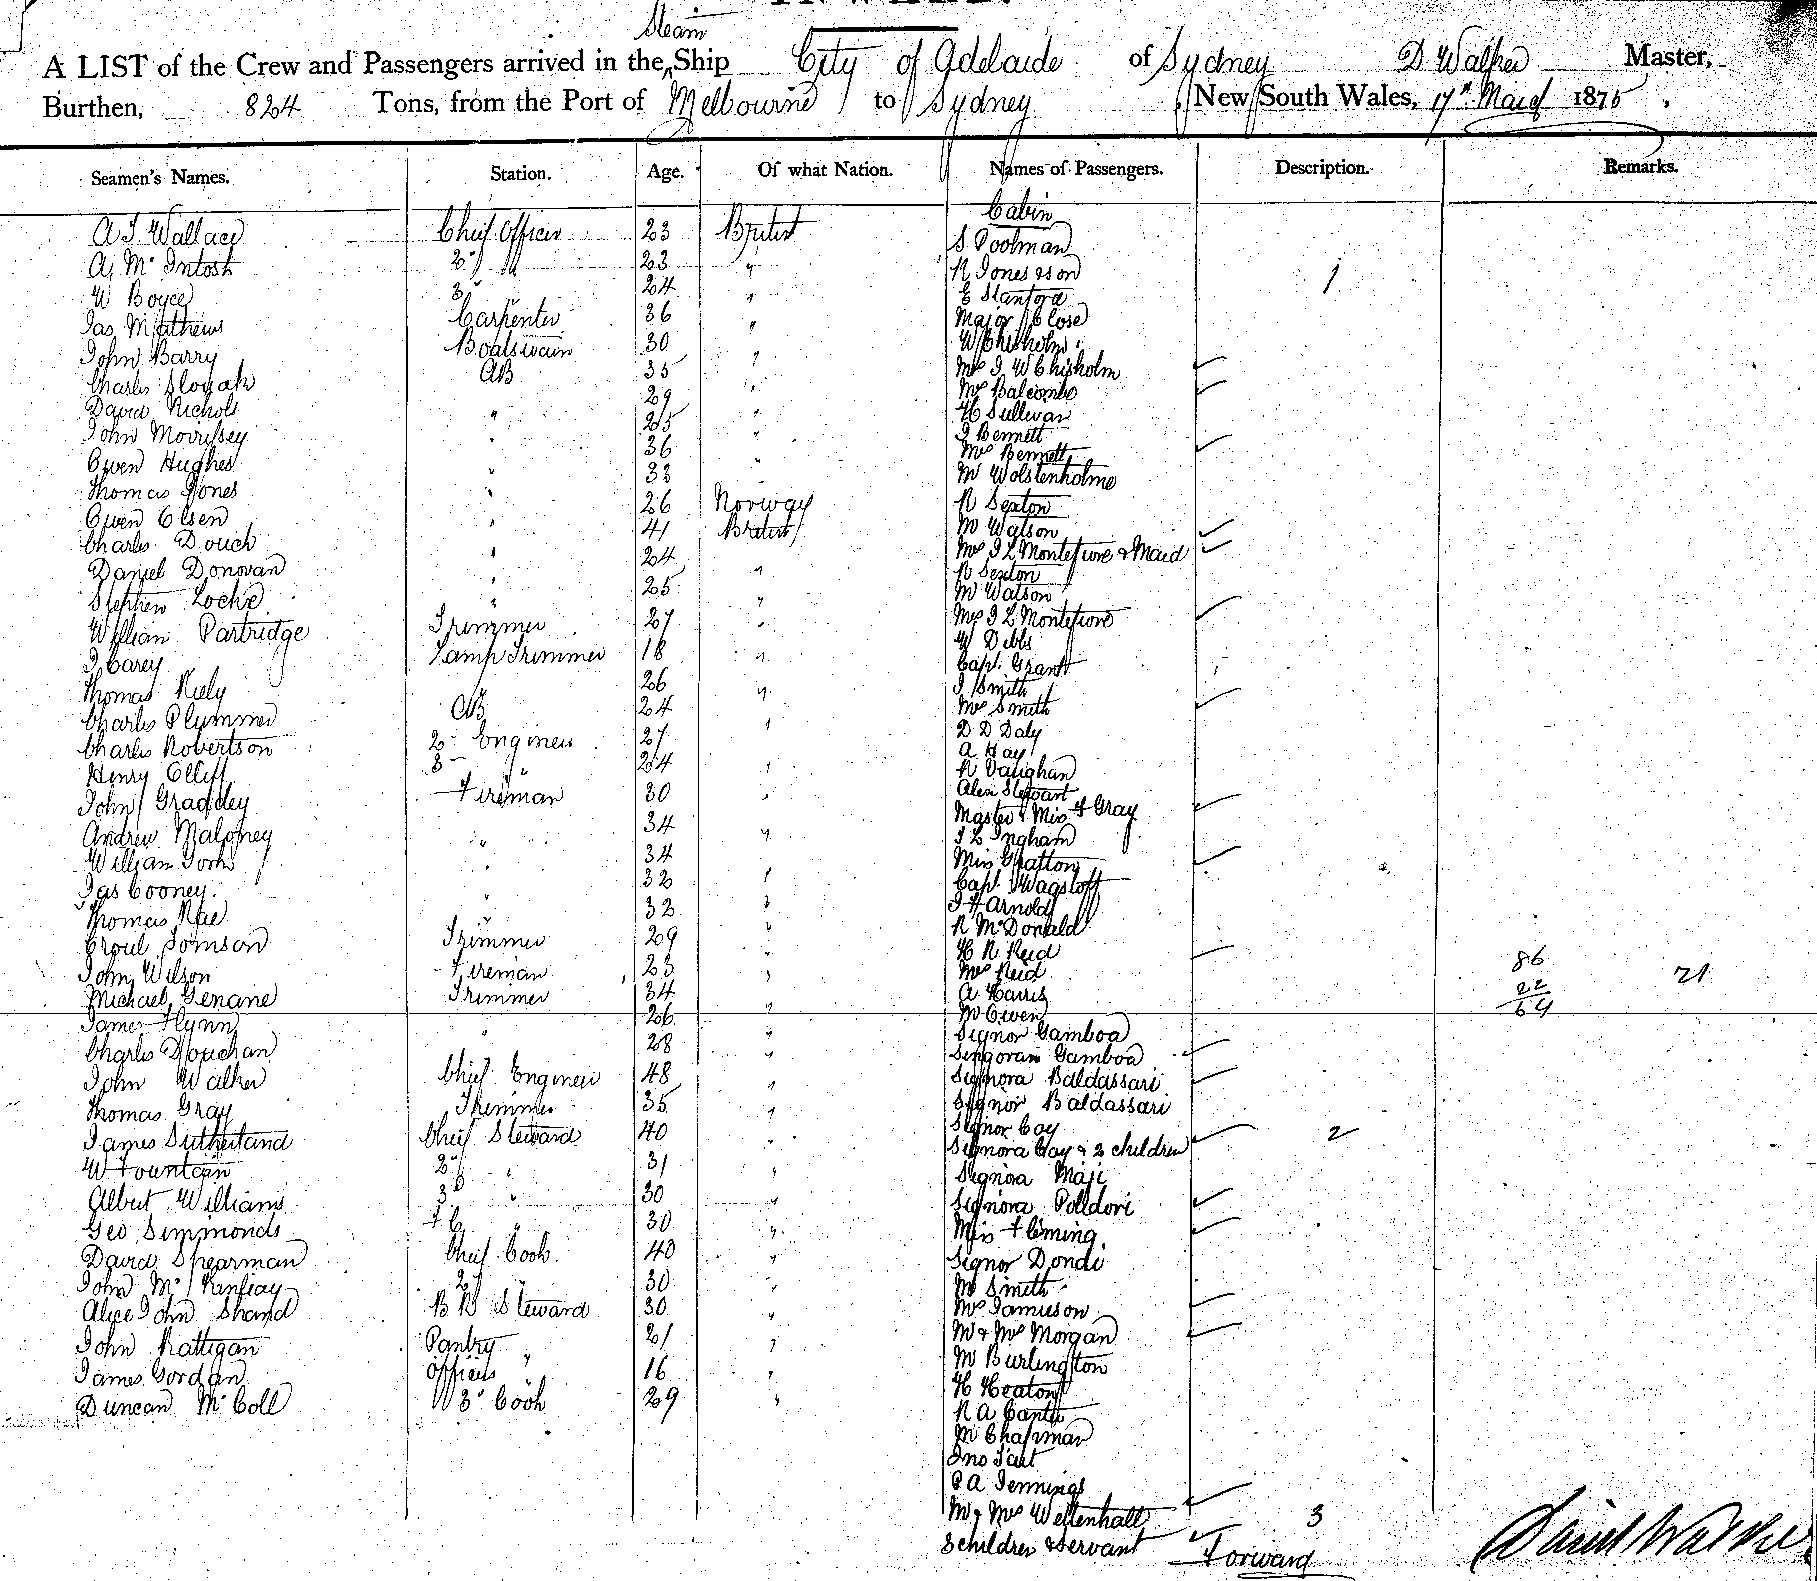 Steam
A LIST of the Crew and Passengers arrived in the Ship City of Adelaide of Sydney D Walker Master,
Burthen, 824 Tons, from the Port of Melbourne to Sydney New South Wales, 17th March 1875
Seamen's Names. Station. Age. Of what Nation. Names of Passengers. Description. Remarks.
Cabin
A J Wallace Chief Officer 23 British S Poolman
A Mc Intosh 2d " 23 " R Jones & son 1
W Boyce 3 24 " E Stanford
Jas Mathews Carpenter 36 " Major Close
John Barry Boatswain 30 " W Chisholm
Charles Slogah AB 35 " Mrs J W Chisholm
David Nichols " 29 " Mrs Balcombe
John Morrissey " 25 " H Sullivan
Owen Hughes " 36 " J Bennett
Thomas Jones " 33 " Mrs Bennett
Owen Olsen " 26 Norway M Wolstenholme
Charles Douch " 41 British R Sexton
Daniel Donovan " 24 " M Watson
Stephen Locke " 25 " Mrs J L Montefiore & Maid
William Partridge Trimmer 27 " R Sexton
J Carey Lamp Trimmer 18 " M Watson
Thomas Kiely 26 " Mrs J L Montefiore
Charles Plummer AB 24 W Dibbs
Charles Robertson 2d Engineer 27 " Capt. Grant
Henry Elliff 3 " 24 " J Smith
John Graddey Fireman 30 " Mrs Smith
Andrew Maloney " 34 " D D Daly
William York " 34 " A Hay
Jas Cooney " 32 " R Vaughan
Thomas Rae " 32 " Alex Stewart
Tomson Trimmer 29 " Master & Miss F Gray
John Wilson Fireman 23 " J L Ingham
Michael Genane Trimmer 34 " Miss Gratton
James Flynn " 26 " Capt Wagstoff
Charles 28 " J H Arnold
John Walker Chief Engineer 48 " R McDonald
Thomas Gray Trimmer 35 " H R Reid
James Sutherland Chief Steward 40 " Mrs Reid
W Fountain 2d " 31 " A Harris
Albert Williams 3d " 30 " M Owen
Geo Simmonds F C " 30 " Signor Gamboa
David Spearman Chief Cook 40 " Signora Gamboa
John Mc 2d " 30 " Signora Baldassari
Alice John Shand B R Steward 30 " Signor Baldassari
John Rattigan Pantry " 21 " Signor Coy
James Gordon Officers " 16 " Signora Coy & 2 children 2
Duncan McColl 3d Cook 29 " Signora Maji
Signora Polldori
Miss Fleming
Signor Dondi
M Smith
Mrs Jamieson
M & Mrs Morgan
M Burlington
H Heaton
R A Canter
M Chapman
Jno Tait
P A Jennings
M & Mrs Wettenhall 3
3 children & servant Forward
86 21
22
64
Daniel Walker